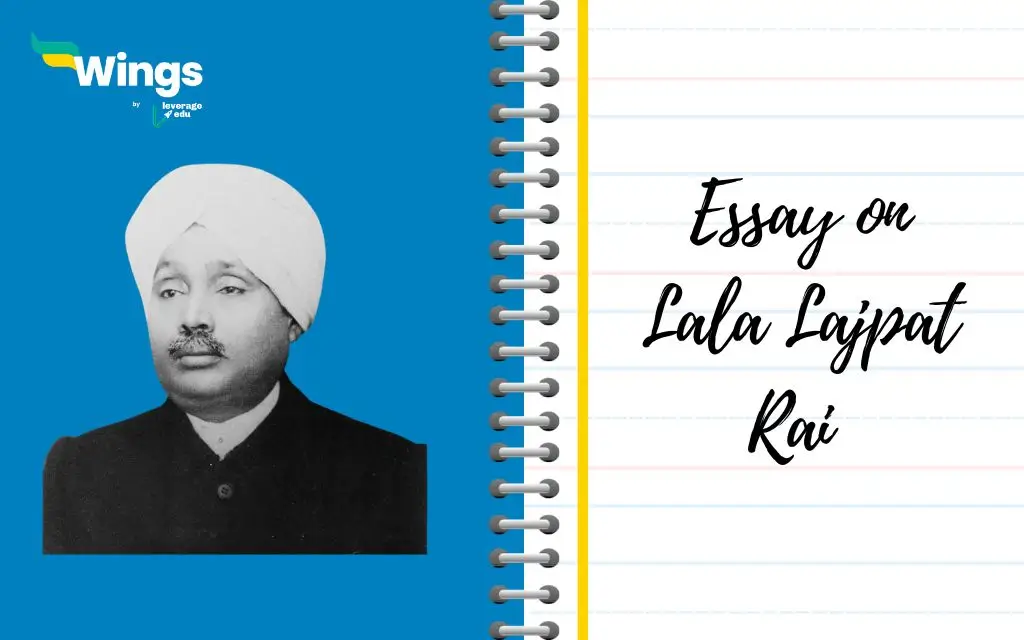 Wings
by leverage
edu
Essay on
Lala Lajpat
Rai